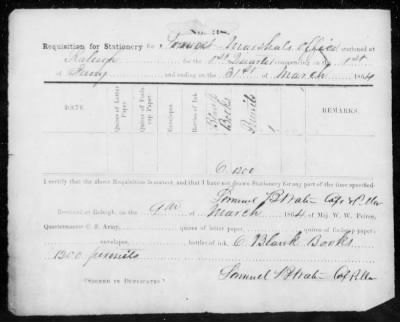 Requisition for Stationery for Provost Marshals Office stationed at
Raleigh for the 1st Quarter commencing on 1st
of and ending on the 31st of March 1864
DATE.
Quires of Letter Paper.
Quires of Foolscap Paper.
Envelopes.
Bottles of Ink.
Blank Books
Permits
REMARKS.
6 1200
I certify that the above Requisition is correct, and that I have not drawn Stationery for any part of the time specified.
Samuel B Waters Capt &
Received at Raleigh, on the 9th of March 1864 of Maj. W. W. Peirce,
Quartermaster C. S. Army, quires of letter paper, quires of foolscap paper,
envelopes, bottles of ink. 6 Blank Books
1200 permits
Samuel B Waters Capt &
(SIGNED IN DUPLICATE.)